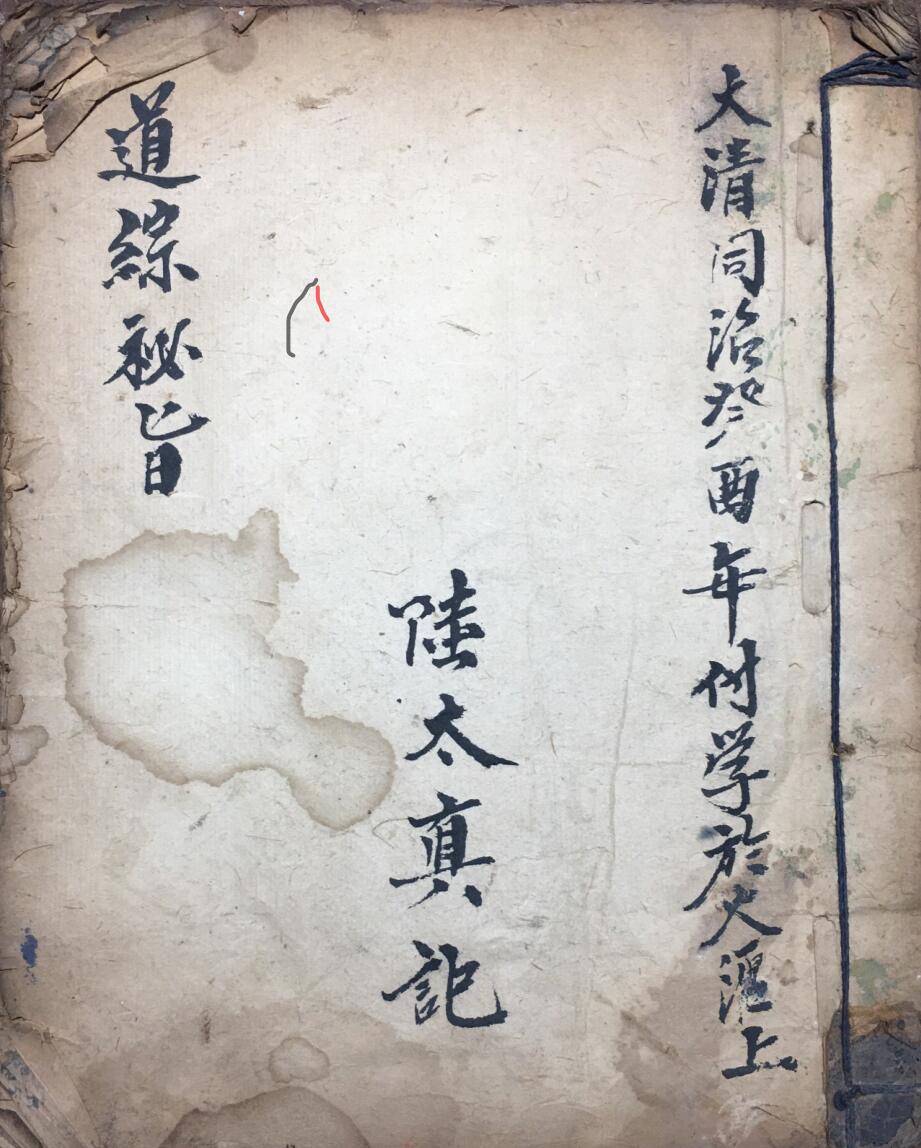 大清同治癸酉年付学於大滬上
陸太真記
道綜秘旨